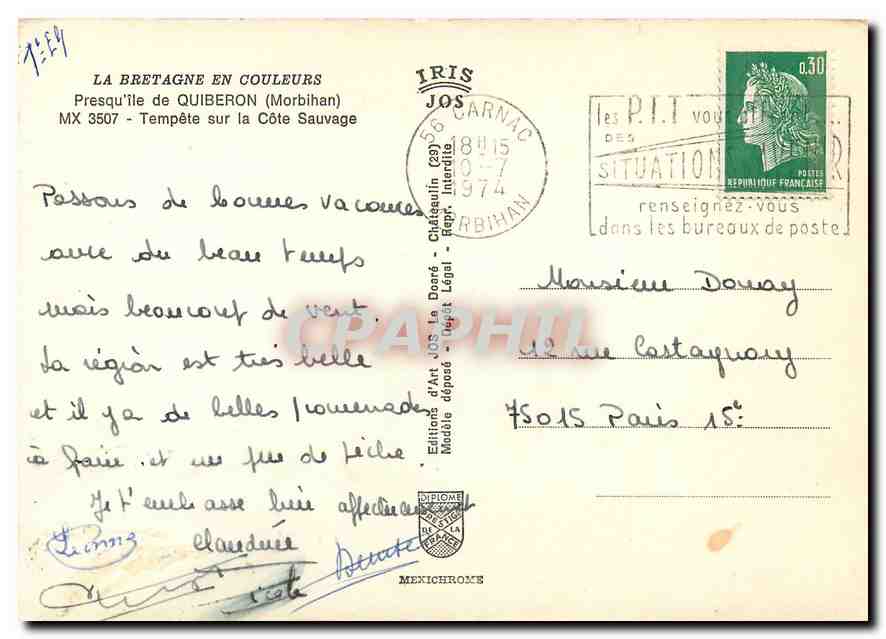 LA BRETAGNE EN COULEURS
Presqu'île de QUIBERON (Morbihan)
MX 3507 - Tempête sur la Côte Sauvage
IRIS
JOS
56 CARNAC
18H15
10-7
1974
MORBIHAN
les P.T.T vous
DES
SITUATION
renseignez-vous
dans les bureaux de poste
0,30
POSTES
REPUBLIQUE FRANÇAISE
Passons de bonnes vacances
avec du beau temps
mais beaucoup de vent.
La région est très belle
et il y a de belles promenades
à faire et un peu de pêche.
Je t'embrasse bien affectueusement
Claudine
Editions d'Art JOS Le Doaré - Châteaulin (29)
Modèle déposé - Dépôt Légal - Repr. Interdite
Monsieur Douay
12 rue Castagnary
75015 Paris 15e
DIPLOME
PRESTIGE
DE LA
FRANCE
MEXICHROME
CPAPHIL